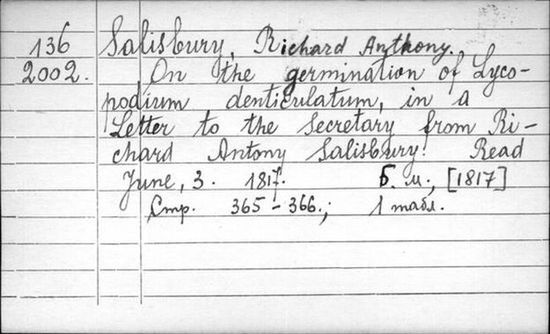 136 Salisbury, Richard Anthony.
2002. On the germination of Lyco-
podium denticulatum, in a
Letter to the Secretary from Ri-
chard Antony Salisbury. Read
June, 3. 1817. Б. м., [1817]
Стр. 365-366.; 1 табл.